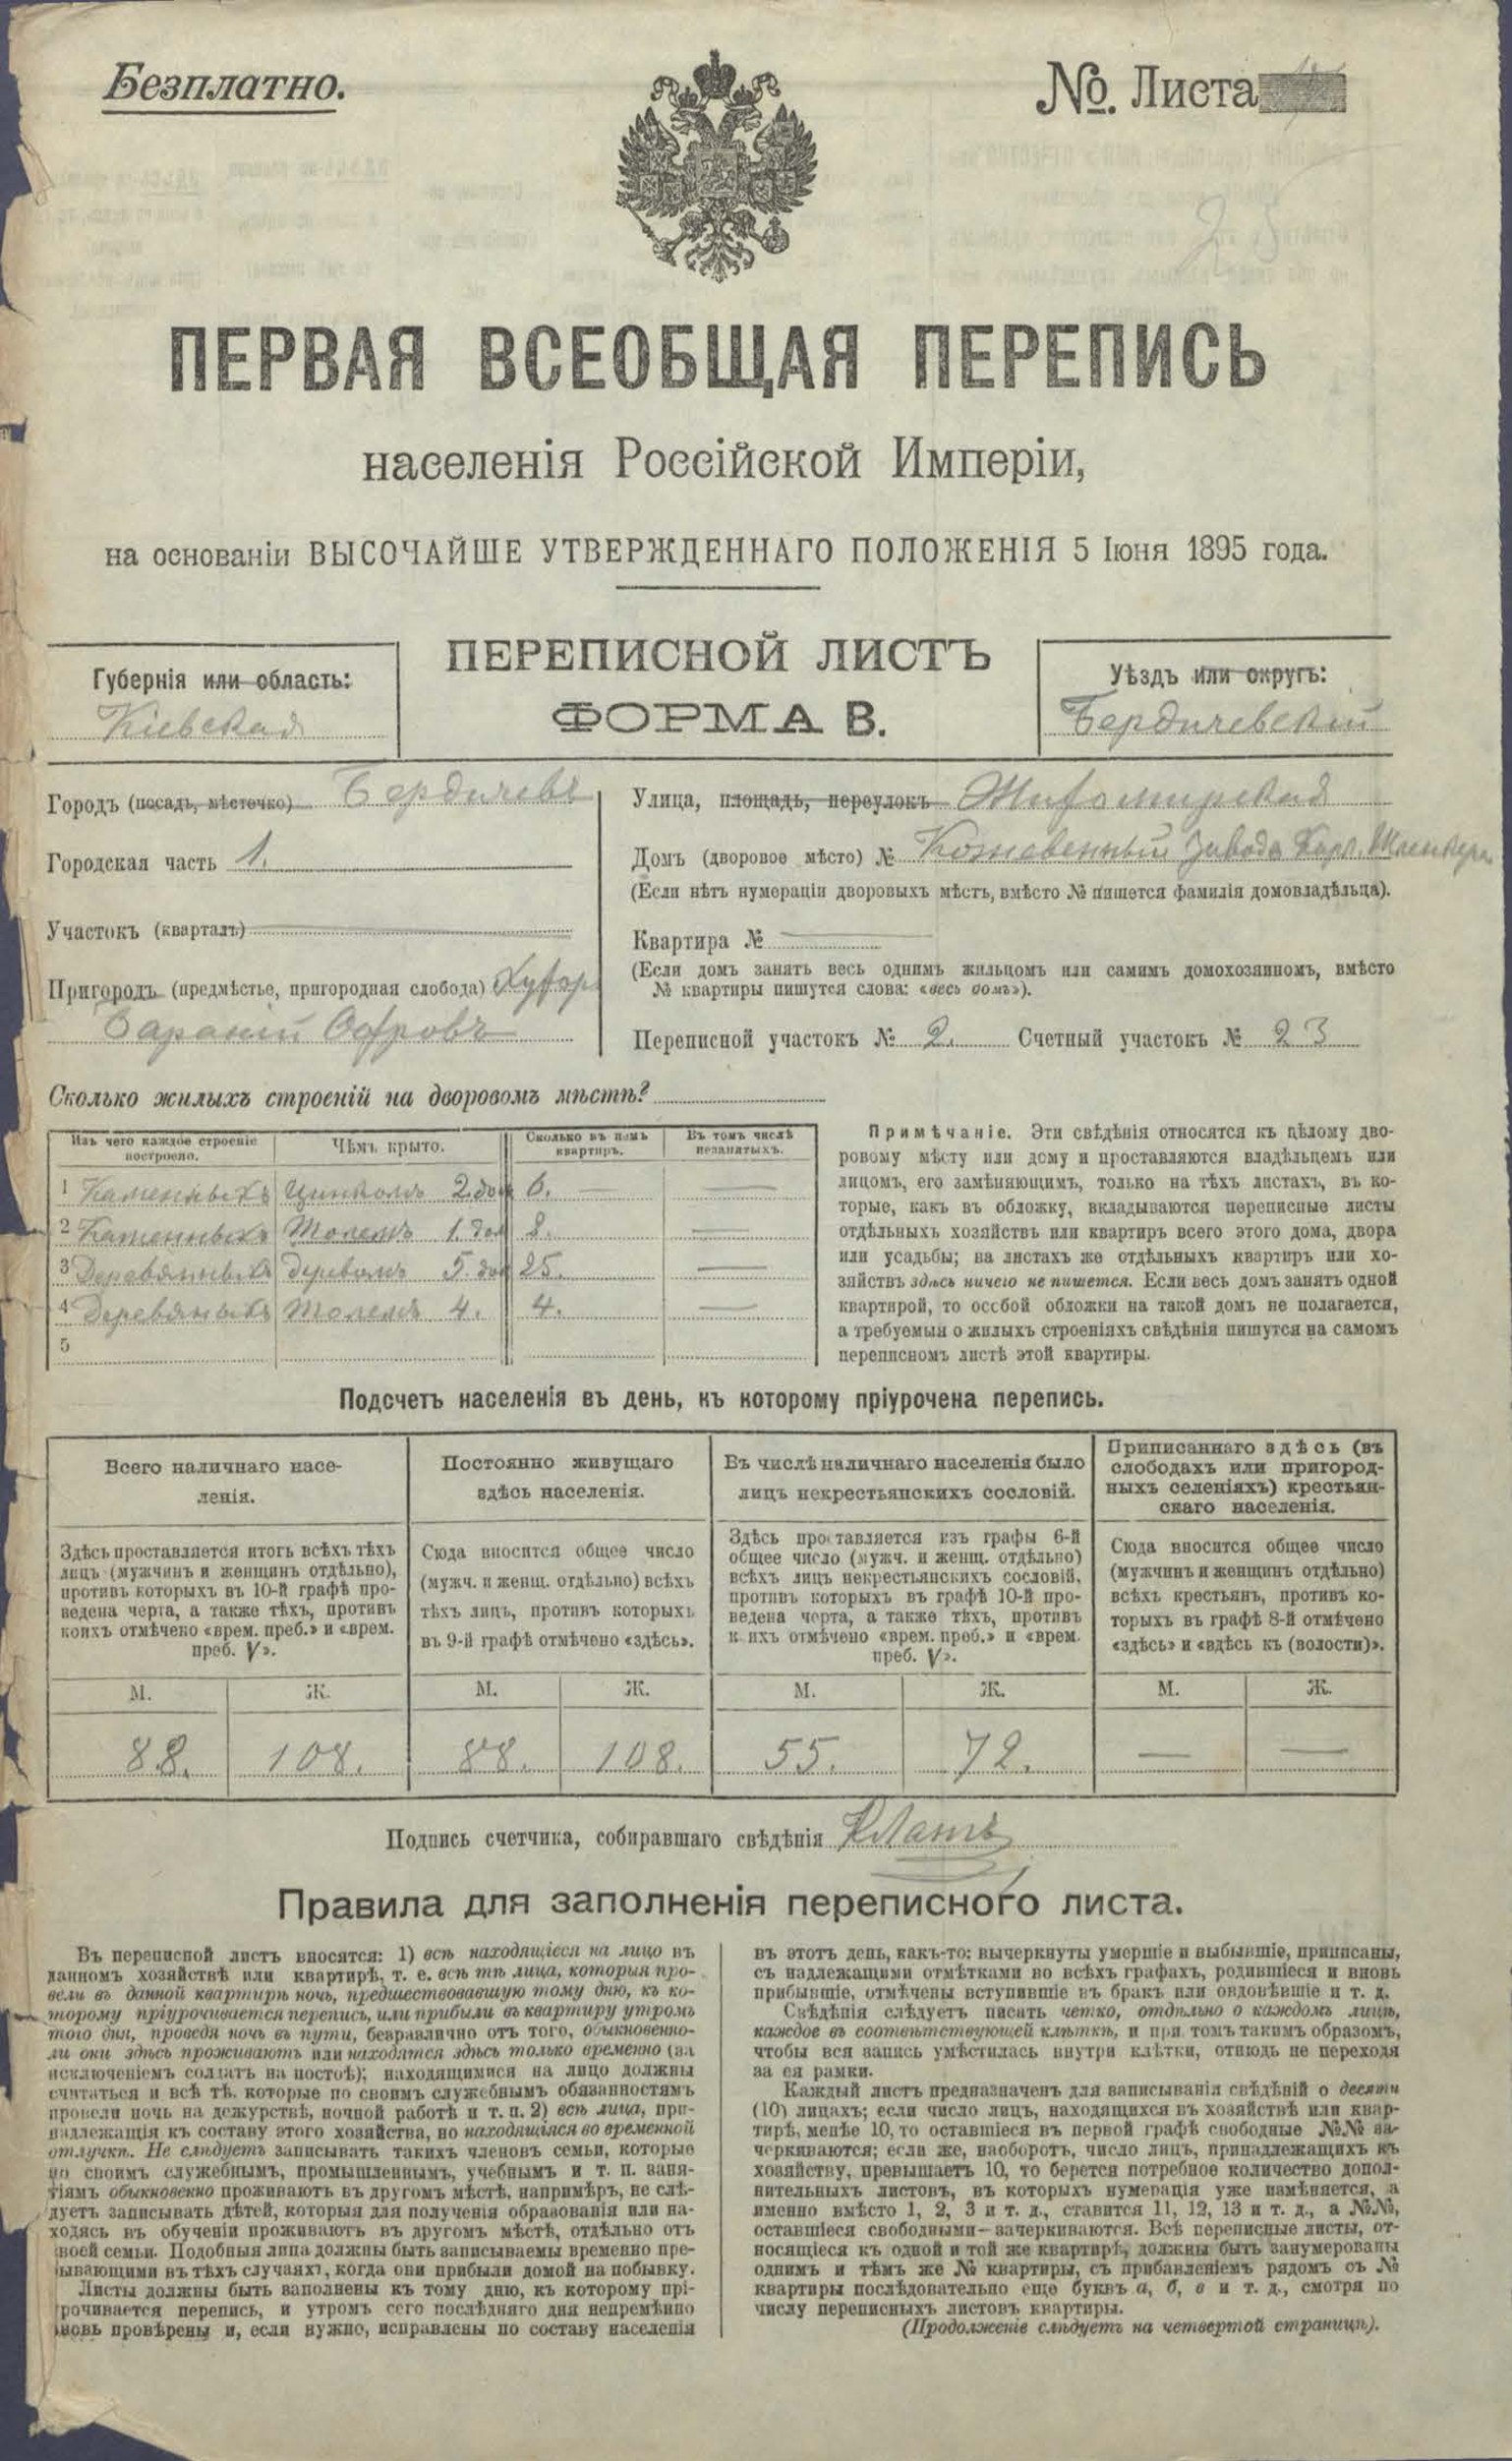 Безплатно.
№. Листа
ПЕРВАЯ ВСЕОБЩАЯ ПЕРЕПИСЬ
населенія Россійской Имперіи,
на основаніи ВЫСОЧАЙШЕ УТВЕРЖДЕННАГО ПОЛОЖЕНІЯ 5 Іюня 1895 года.
Губернія или область:
Кіевская
ПЕРЕПИСНОЙ ЛИСТЪ
ФОРМА В.
Уѣздъ или округъ:
Бердичевскій
Городъ (посадъ, мѣстечко) Бердичевъ
Городская часть 1.
Участокъ (кварталъ)
Пригородъ (предмѣстье, пригородная слобода) Хуторъ
Бараній Островъ
Улица, площадь, переулокъ Житомирская
Домъ (дворовое мѣсто) № Кожевенный завода Карл. Шленкера
(Если нѣтъ нумераціи дворовыхъ мѣстъ, вмѣсто № пишется фамилія домовладѣльца).
Квартира №
(Если домъ занятъ весь однимъ жильцомъ или самимъ домохозяиномъ, вмѣсто
№ квартиры пишутся слова: «весь домъ»).
Переписной участокъ № 2. Счетный участокъ № 23
Сколько жилыхъ строеній на дворовомъ мѣстѣ?
Изъ чего каждое строеніе
построено.
Чѣмъ крыто.
Сколько въ немъ
квартиръ.
Въ томъ числѣ
незанятыхъ.
1 Каменныхъ Цинкомъ 2 дом 6. —
2 Каменныхъ Толемъ 1. дом 8. —
3 Деревянныхъ деревомъ 5. дом 25. —
4 Деревяныхъ Толемъ 4. 4. —
5
Примѣчаніе. Эти свѣдѣнія относятся къ цѣлому дво-
ровому мѣсту или дому и проставляются владѣльцемъ или
лицомъ, его замѣняющимъ, только на тѣхъ листахъ, въ ко-
торые, какъ въ обложку, вкладываются переписные листы
отдѣльныхъ хозяйствъ или квартиръ всего этого дома, двора
или усадьбы; на листахъ же отдѣльныхъ квартиръ или хо-
зяйствъ здѣсь ничего не пишется. Если весь домъ занятъ одной
квартирой, то особой обложки на такой домъ не полагается,
а требуемыя о жилыхъ строеніяхъ свѣдѣнія пишутся на самомъ
переписномъ листѣ этой квартиры.
Подсчетъ населенія въ день, къ которому пріурочена перепись.
Всего наличнаго насе-
ленія.
Здѣсь проставляется итогъ всѣхъ тѣхъ
лицъ (мужчинъ и женщинъ отдѣльно),
противъ которыхъ въ 10-й графѣ про-
ведена черта, а также тѣхъ, противъ
коихъ отмѣчено «врем. преб.» и «врем.
преб. V».
М. Ж.
88. 108.
Постоянно живущаго
здѣсь населенія.
Сюда вносится общее число
(мужч. и женщ. отдѣльно) всѣхъ
тѣхъ лицъ, противъ которыхъ
въ 9-й графѣ отмѣчено «здѣсь».
М. Ж.
88. 108.
Въ числѣ наличнаго населенія было
лицъ некрестьянскихъ сословій.
Здѣсь проставляется изъ графы 6-й
общее число (мужч. и женщ. отдѣльно)
всѣхъ лицъ некрестьянскихъ сословій,
противъ которыхъ въ графѣ 10-й про-
ведена черта, а также тѣхъ, противъ
коихъ отмѣчено «врем. преб.» и «врем.
преб. V».
М. Ж.
55. 72.
Приписаннаго здѣсь (въ
слободахъ или пригород-
ныхъ селеніяхъ) крестьян-
скаго населенія.
Сюда вносится общее число
(мужчинъ и женщинъ отдѣльно)
всѣхъ крестьянъ, противъ ко-
торыхъ въ графѣ 8-й отмѣчено
«здѣсь» и «здѣсь къ (волости)».
М. Ж.
— —
Подпись счетчика, собиравшаго свѣдѣнія
Правила для заполненія переписного листа.
Въ переписной листъ вносятся: 1) всѣ находящіеся на лицо въ
данномъ хозяйствѣ или квартирѣ, т. е. всѣ тѣ лица, которыя про-
вели въ данной квартирѣ ночь, предшествовавшую тому дню, къ ко-
торому пріурочивается перепись, или прибыли въ квартиру утромъ
того дня, проведя ночь въ пути, безразлично отъ того, обыкновенно-
ли они здѣсь проживаютъ или находятся здѣсь только временно (за
исключеніемъ солдатъ на постоѣ); находящимися на лицо должны
считаться и всѣ тѣ, которые по своимъ служебнымъ обязанностямъ
провели ночь на дежурствѣ, ночной работѣ и т. п. 2) всѣ лица, при-
надлежащія къ составу этого хозяйства, но находящіяся во временной
отлучкѣ. Не слѣдуетъ записывать такихъ членовъ семьи, которые
по своимъ служебнымъ, промышленнымъ, учебнымъ и т. п. заня-
тіямъ обыкновенно проживаютъ въ другомъ мѣстѣ, напримѣръ, не слѣ-
дуетъ записывать дѣтей, которыя для полученія образованія или на-
ходясь въ обученіи проживаютъ въ другомъ мѣстѣ, отдѣльно отъ
своей семьи. Подобныя лица должны быть записываемы временно пре-
бывающими въ тѣхъ случаяхъ, когда они прибыли домой на побывку.
Листы должны быть заполнены къ тому дню, къ которому прі-
урочивается перепись, и утромъ сего послѣдняго дня непремѣнно
вновь провѣрены и, если нужно, исправлены по составу населенія
въ этотъ день, какъ-то: вычеркнуты умершіе и выбывшіе, приписаны,
съ надлежащими отмѣтками во всѣхъ графахъ, родившіеся и вновь
прибывшіе, отмѣчены вступившіе въ бракъ или овдовѣвшіе и т. д.
Свѣдѣнія слѣдуетъ писать четко, отдѣльно о каждомъ лицѣ,
каждое въ соотвѣтствующей клѣткѣ, и при томъ такимъ образомъ,
чтобы вся запись умѣстилась внутри клѣтки, отнюдь не переходя
за ея рамки.
Каждый листъ предназначенъ для записыванія свѣдѣній о десяти
(10) лицахъ; если число лицъ, находящихся въ хозяйствѣ или квар-
тирѣ, менѣе 10, то оставшіеся въ первой графѣ свободные №№ за-
черкиваются; если же, наоборотъ, число лицъ, принадлежащихъ къ
хозяйству, превышаетъ 10, то берется потребное количество допол-
нительныхъ листовъ, въ которыхъ нумерація уже измѣняется, а
именно вмѣсто 1, 2, 3 и т. д., ставится 11, 12, 13 и т. д., а №№,
оставшіеся свободными—зачеркиваются. Всѣ переписные листы, от-
носящіеся къ одной и той же квартирѣ, должны быть занумерованы
однимъ и тѣмъ же № квартиры, съ прибавленіемъ рядомъ съ №
квартиры послѣдовательно еще буквъ а, б, в и т. д., смотря по
числу переписныхъ листовъ квартиры.
(Продолженіе слѣдуетъ на четвертой страницѣ).